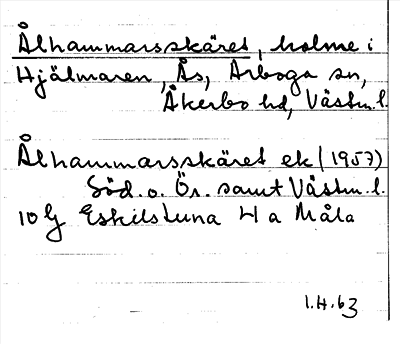 Ålhammarsskäret, holme i
Hjälmaren, Ås, Arboga sn,
Åkerbo hd, Västm.l.
Ålhammarsskäret ek (1957)
Söd. o. Ör. samt Västm.l.
10 G Eskilstuna 4 a Måla
1.4.63